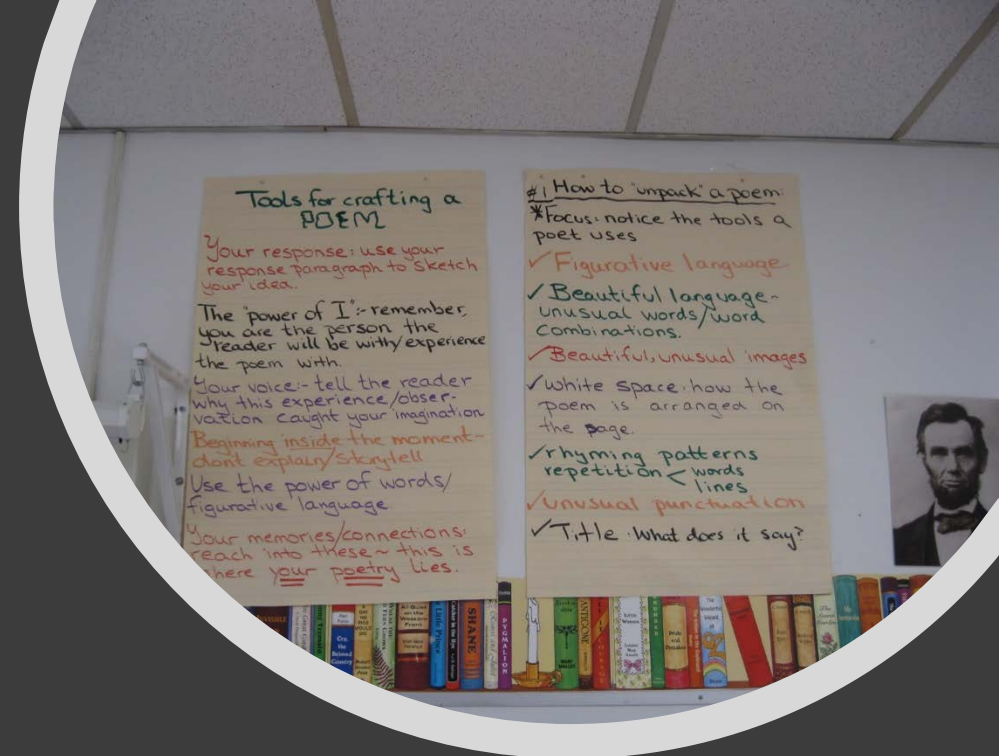 Tools for crafting a
POEM
Your response: use your
response paragraph to sketch
your idea.
The "power of I":- remember,
you are the person the
reader will be with/experience
the poem with.
Your voice:- tell the reader
why this experience/obser-
vation caught your imagination
Beginning inside the moment-
don't explain/storytell
Use the power of words/
figurative language
Your memories/connections:
reach into these ~ this is
where your poetry lies.
#1 How to "unpack" a poem:
*Focus: notice the tools a
poet uses
✓ Figurative language
✓ Beautiful language-
unusual words/word
combinations.
✓ Beautiful, unusual images
✓ white space: how the
poem is arranged on
the page.
✓ rhyming patterns
repetition < words
lines
✓ unusual punctuation
✓ Title: What does it say?
All Quiet
on the
Western
Front
Little Prince
SHANE
PYGMALION
ANTIGONE
Little
Women
Pride
and
Prejudice
The
Wonderful
Wizard of
Cry, the
Beloved
Country